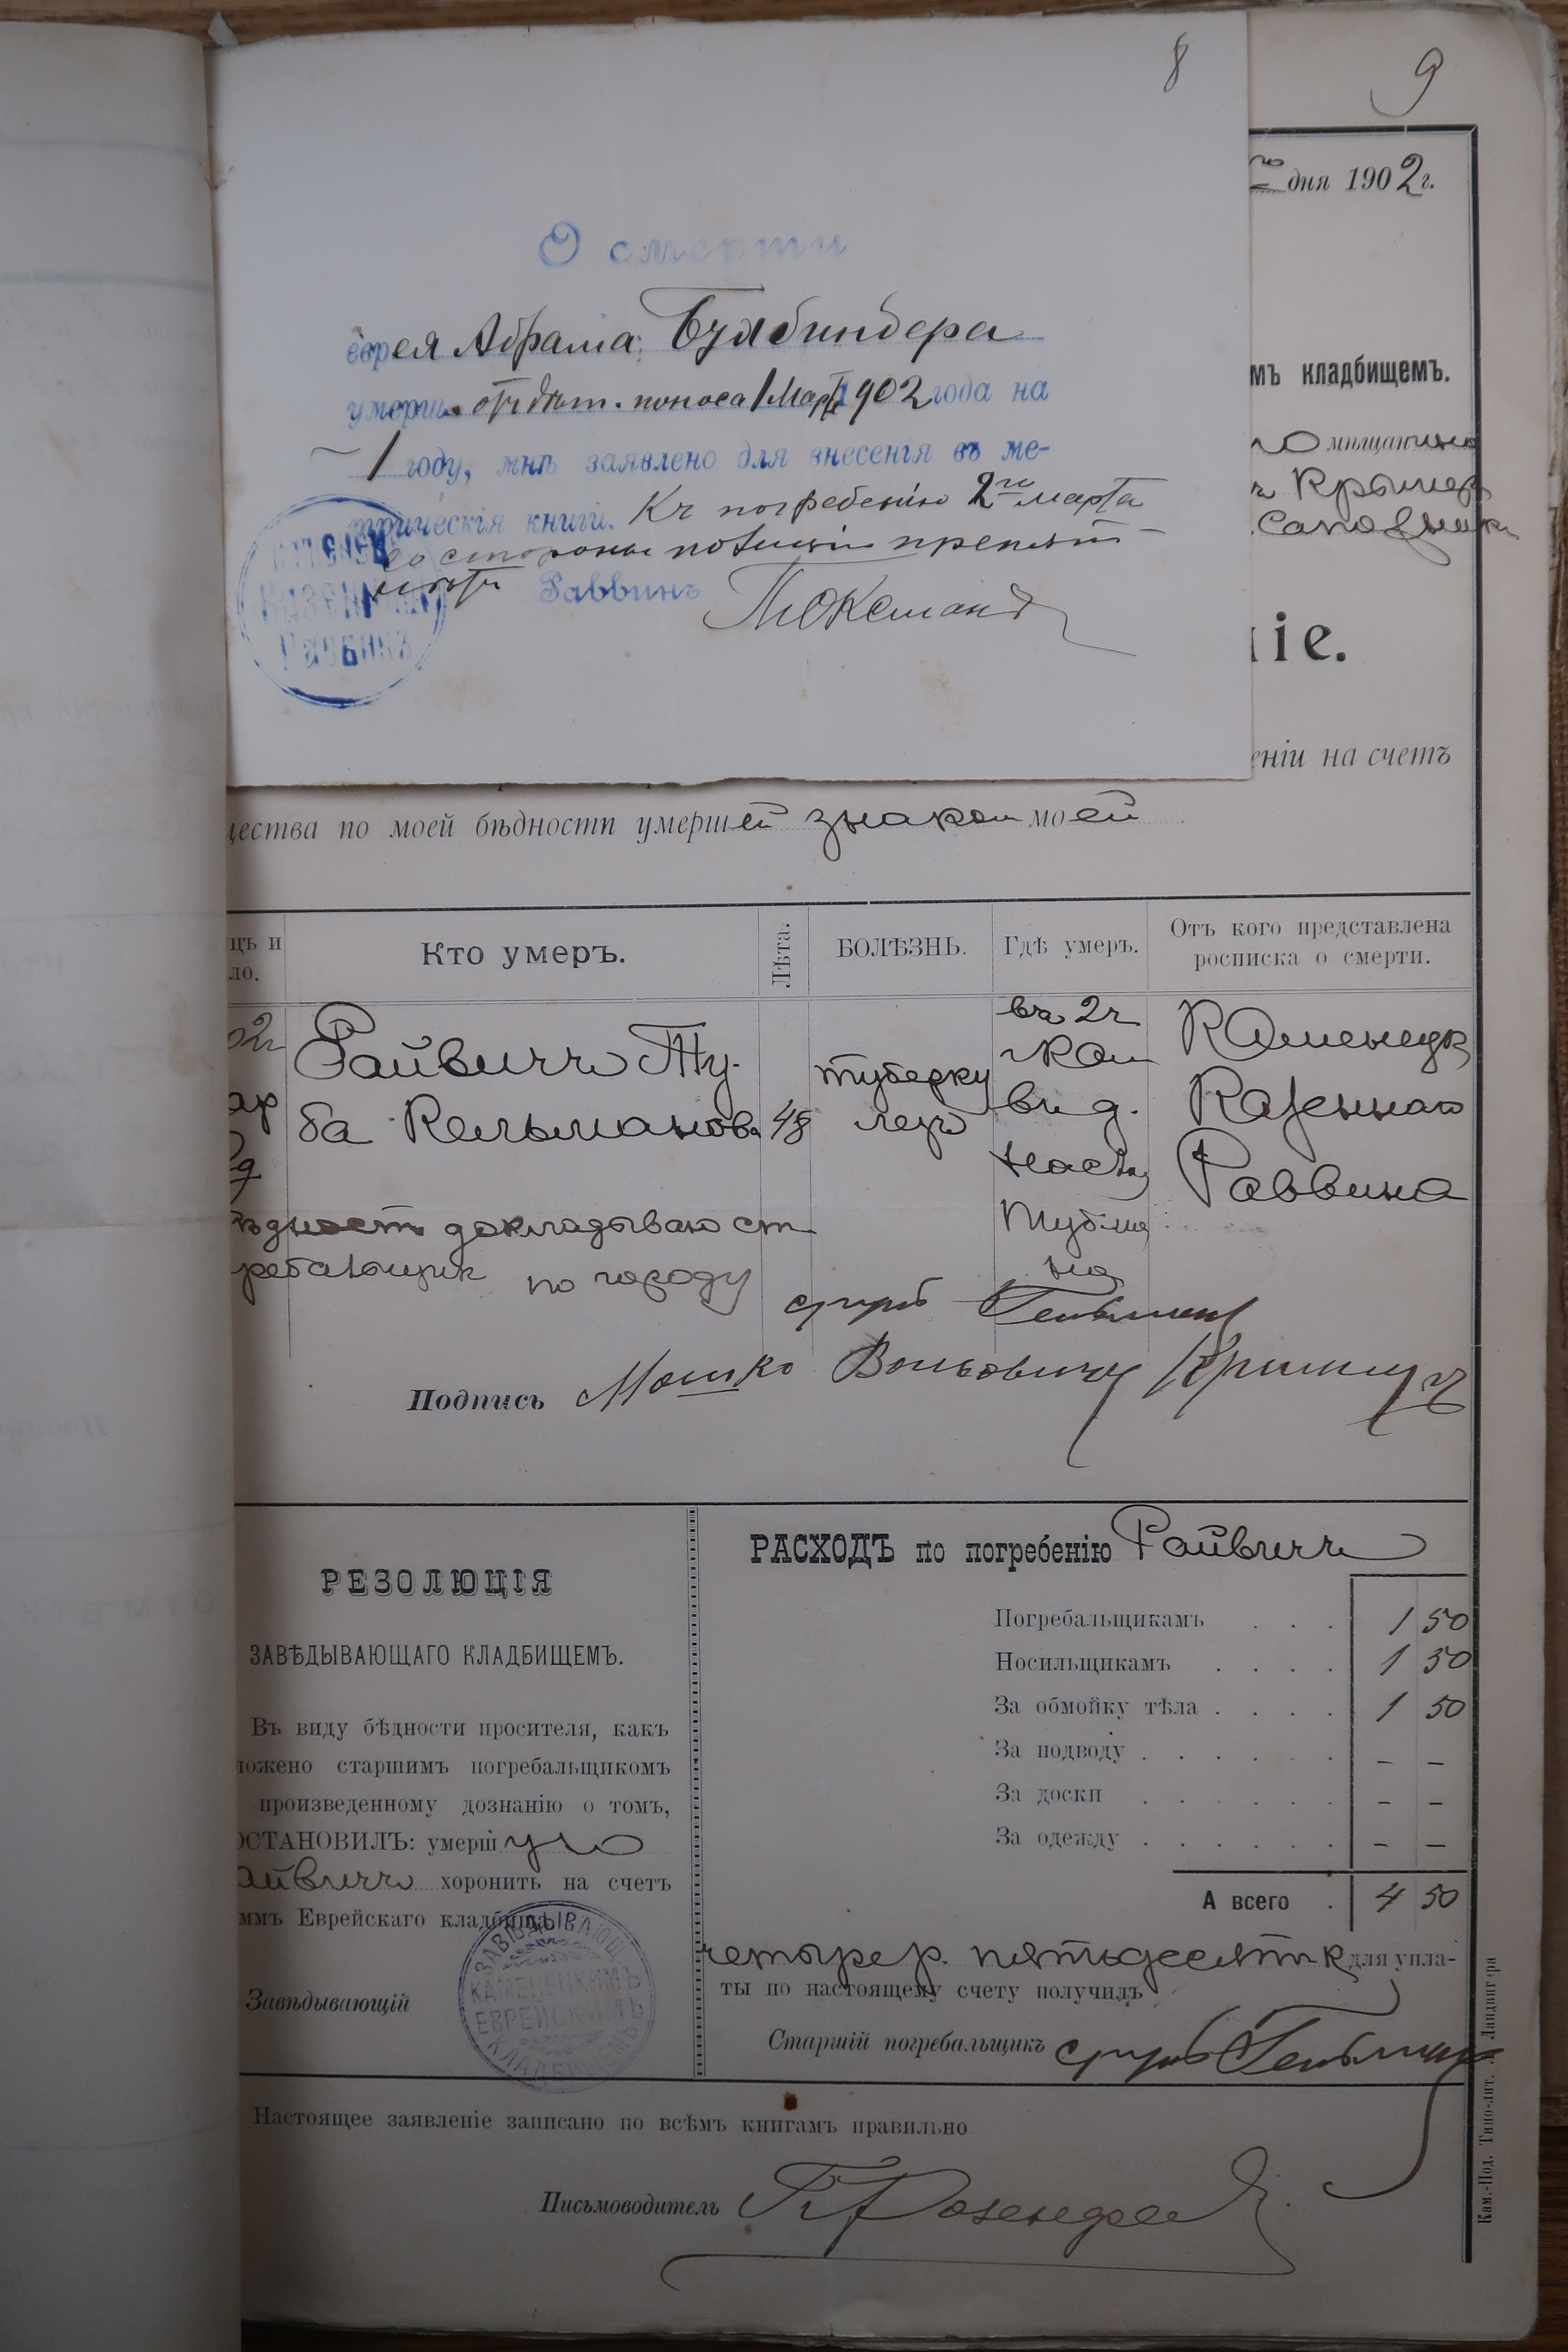 8
9
дня 1902 г.
О смерти
еврея Абрама Бухбиндера
умерш. отъ дѣт. поноса 1 Марта 1902 года на
1 году, мнѣ заявлено для внесенія въ ме-
трическія книги. Къ погребенію 2го марта
со стороны полиціи препят
Раввинъ
Казенный
Раввинъ
мъ кладбищемъ.
мѣщанина
Сапожник
ніе.
еніи на счетъ
щества по моей бѣдности умершей знакомоей
цъ и
ло.
Кто умеръ.
Лѣта.
БОЛѢЗНЬ.
Гдѣ умеръ.
Отъ кого представлена
росписка о смерти.
02г
Райвичъ Ту-
ба Кельманов.
48
туберку
лезъ
въ 2ч
въ д.
Каменецк
Казеннаго
Раввина
ѣдность докладываю ст
ребальщик по городу
Подпись Мошко Вольовичъ
РЕЗОЛЮЦІЯ
ЗАВѢДЫВАЮЩАГО КЛАДБИЩЕМЪ.
Въ виду бѣдности просителя, какъ
ложено старшимъ погребальщикомъ
произведенному дознанію о томъ,
ОСТАНОВИЛЪ: умершую
айвичъ хоронить на счетъ
ммъ Еврейскаго кладбища.
Завѣдывающій
ЗАВѢДЫВАЮЩ.
КАМЕНЕЦКИМЪ
ЕВРЕЙСКИМЪ
КЛАДБИЩЕМЪ
РАСХОДЪ по погребенію Райвичъ
Погребальщикамъ . . . 1 50
Носильщикамъ . . . . 1 50
За обмойку тѣла . . . . 1 50
За подводу . . . . . . – –
За доски . . . . . . – –
За одежду . . . . . . – –
А всего . 4 50
четыре р. пятьдесятъ к для упла-
ты по настоящему счету получилъ
Старшій погребальщикъ
Настоящее заявленіе записано по всѣмъ книгамъ правильно
Письмоводитель
Кам.-Под. Типо-лит. Ландвигера